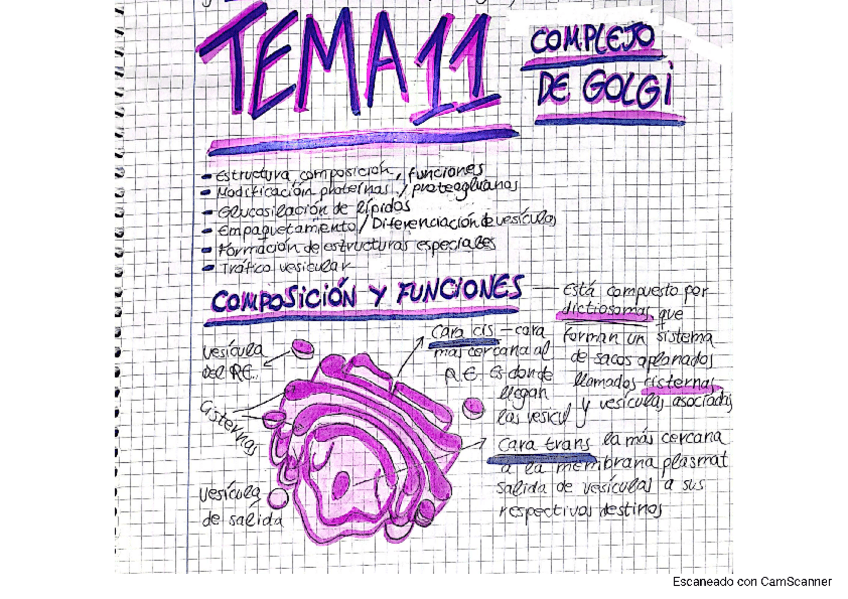 TEMA 11
COMPLEJO
DE GOLGI
- Estructura, composición, funciones
- Modificación proteínas / proteoglucanos
- Glucosilación de lípidos
- Empaquetamiento / Diferenciación de vesículas
- Formación de estructuras especiales
- Tráfico vesicular
COMPOSICIÓN Y FUNCIONES
Está compuesto por
dictiosomas que
forman un sistema
de sacos aplanados
llamados cisternas
y vesículas asociadas
cara cis - cara
más cercana al
R.E. Es donde
llegan
las vesicul
vesícula
del R.E.
cisternas
vesícula
de salida
Cara trans la más cercana
a la membrana plasmat
salida de vesículas a sus
respectivos destinos
Escaneado con CamScanner